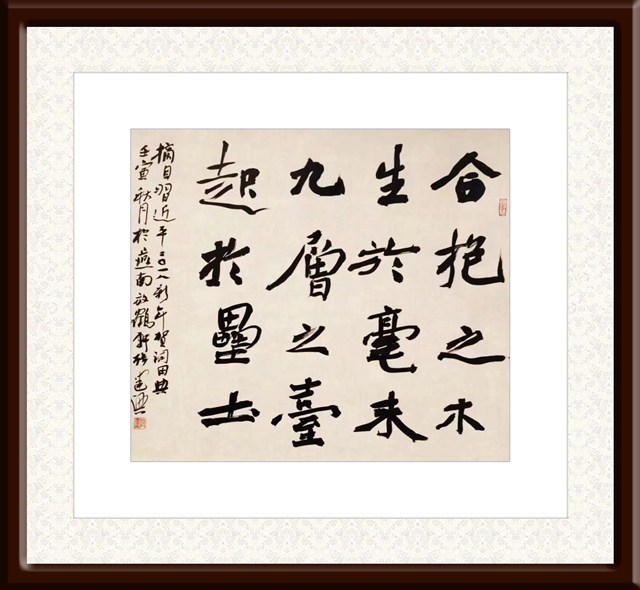 合抱之木
生於毫末
九層之臺
起於壘土
摘自習近平二〇一八新年賀詞用典
壬寅秋月於燕南放鶴軒